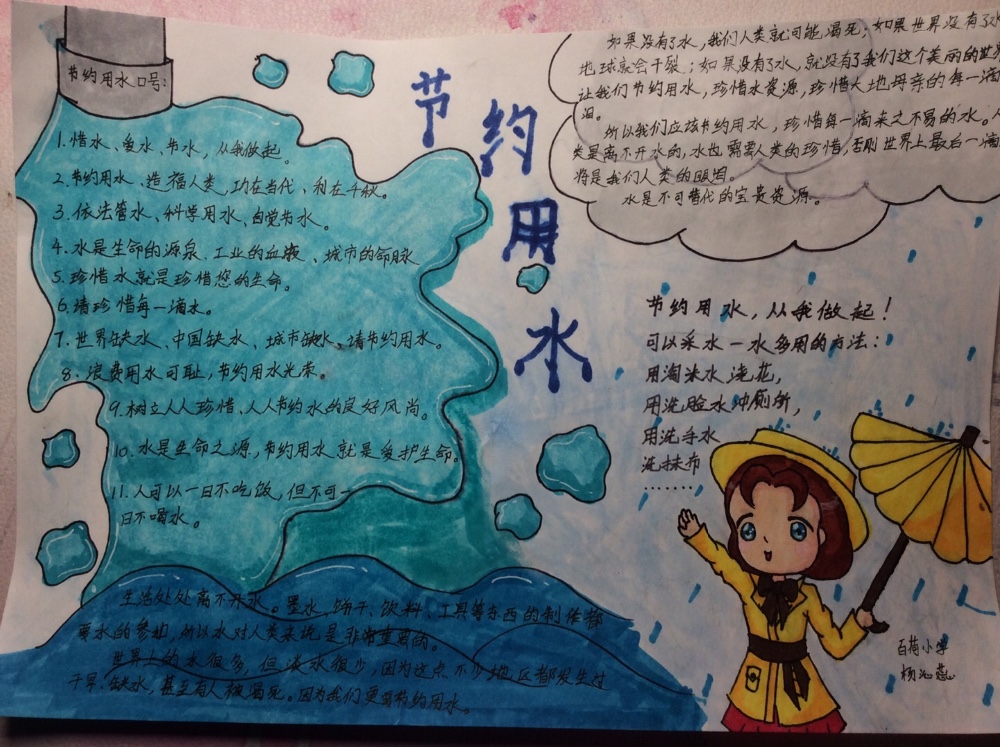 节约用水
节约用水口号:
1.惜水、爱水、节水，从我做起。
2.节约用水、造福人类，功在当代、利在千秋。
3.依法管水、科学用水、自觉节水。
4.水是生命的源泉、工业的血液、城市的命脉
5.珍惜水就是珍惜您的生命。
6.请珍惜每一滴水。
7.世界缺水、中国缺水、城市缺水，请节约用水。
8.浪费用水可耻，节约用水光荣。
9.树立人人珍惜、人人节约水的良好风尚。
10.水是生命之源，节约用水就是爱护生命。
11.人可以一日不吃饭，但不可一
日不喝水。
如果没有了水，我们人类就可能渴死；如果世界没有了水
地球就会干裂；如果没有了水，就没有了我们这个美丽的世
让我们节约用水，珍惜水资源，珍惜大地母亲的每一滴
泪。
所以我们应该节约用水，珍惜每一滴来之不易的水。人
类是离不开水的，水也需要人类的珍惜，否则世界上最后一滴
将是我们人类的眼泪。
水是不可替代的宝贵资源。
节约用水，从我做起！
可以采水一水多用的方法：
用淘米水浇花，
用洗脸水冲厕所，
用洗手水
洗抹布
.......
生活处处离不开水。墨水、饼干、饮料、工具等东西的制作都
要水的参加，所以水对人类来说是非常重要的。
世界上的水很多，但淡水很少，因为这点不少地区都发生过
干旱、缺水，甚至有人被渴死。因为我们更要节约用水。
百荷小学
杨沁